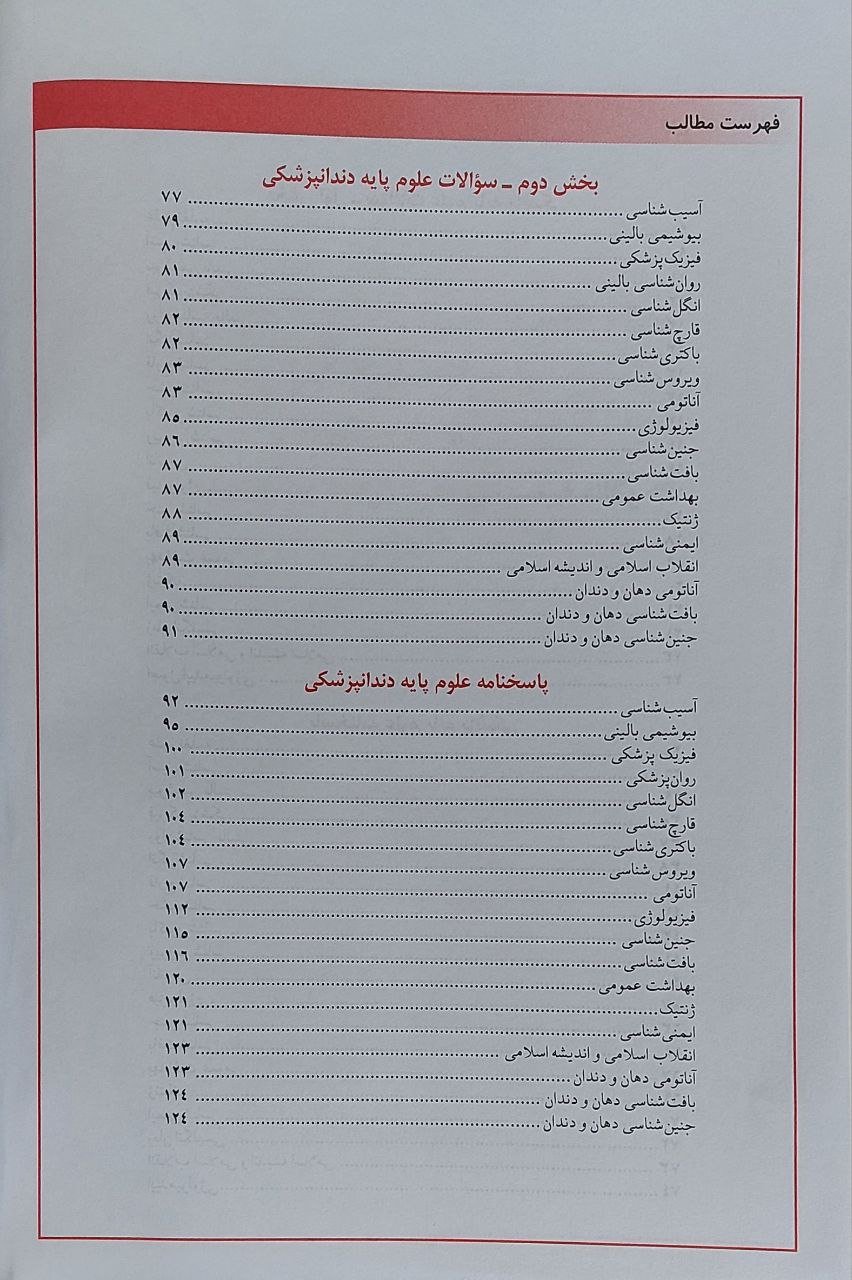 فهرست مطالب
بخش دوم ـ سؤالات علوم پایه دندانپزشکی
آسیب‌شناسی ........ ۷۷
بیوشیمی بالینی ........ ۷۹
فیزیک‌پزشکی ........ ۸۰
روان‌شناسی بالینی ........ ۸۱
انگل‌شناسی ........ ۸۱
قارچ‌شناسی ........ ۸۲
باکتری‌شناسی ........ ۸۲
ویروس‌شناسی ........ ۸۳
آناتومی ........ ۸۳
فیزیولوژی ........ ۸۵
جنین‌شناسی ........ ۸۶
بافت‌شناسی ........ ۸۷
بهداشت عمومی ........ ۸۷
ژنتیک ........ ۸۸
ایمنی‌شناسی ........ ۸۹
انقلاب اسلامی و اندیشه اسلامی ........ ۸۹
آناتومی دهان و دندان ........ ۹۰
بافت‌شناسی دهان و دندان ........ ۹۰
جنین‌شناسی دهان و دندان ........ ۹۱
پاسخنامه علوم پایه دندانپزشکی
آسیب‌شناسی ........ ۹۲
بیوشیمی بالینی ........ ۹۵
فیزیک پزشکی ........ ۱۰۰
روان‌پزشکی ........ ۱۰۱
انگل‌شناسی ........ ۱۰۲
قارچ‌شناسی ........ ۱۰۴
باکتری‌شناسی ........ ۱۰۴
ویروس‌شناسی ........ ۱۰۷
آناتومی ........ ۱۰۷
فیزیولوژی ........ ۱۱۲
جنین‌شناسی ........ ۱۱۵
بافت‌شناسی ........ ۱۱۶
بهداشت عمومی ........ ۱۲۰
ژنتیک ........ ۱۲۱
ایمنی‌شناسی ........ ۱۲۱
انقلاب اسلامی و اندیشه اسلامی ........ ۱۲۳
آناتومی دهان و دندان ........ ۱۲۳
بافت‌شناسی دهان و دندان ........ ۱۲۴
جنین‌شناسی دهان و دندان ........ ۱۲۴